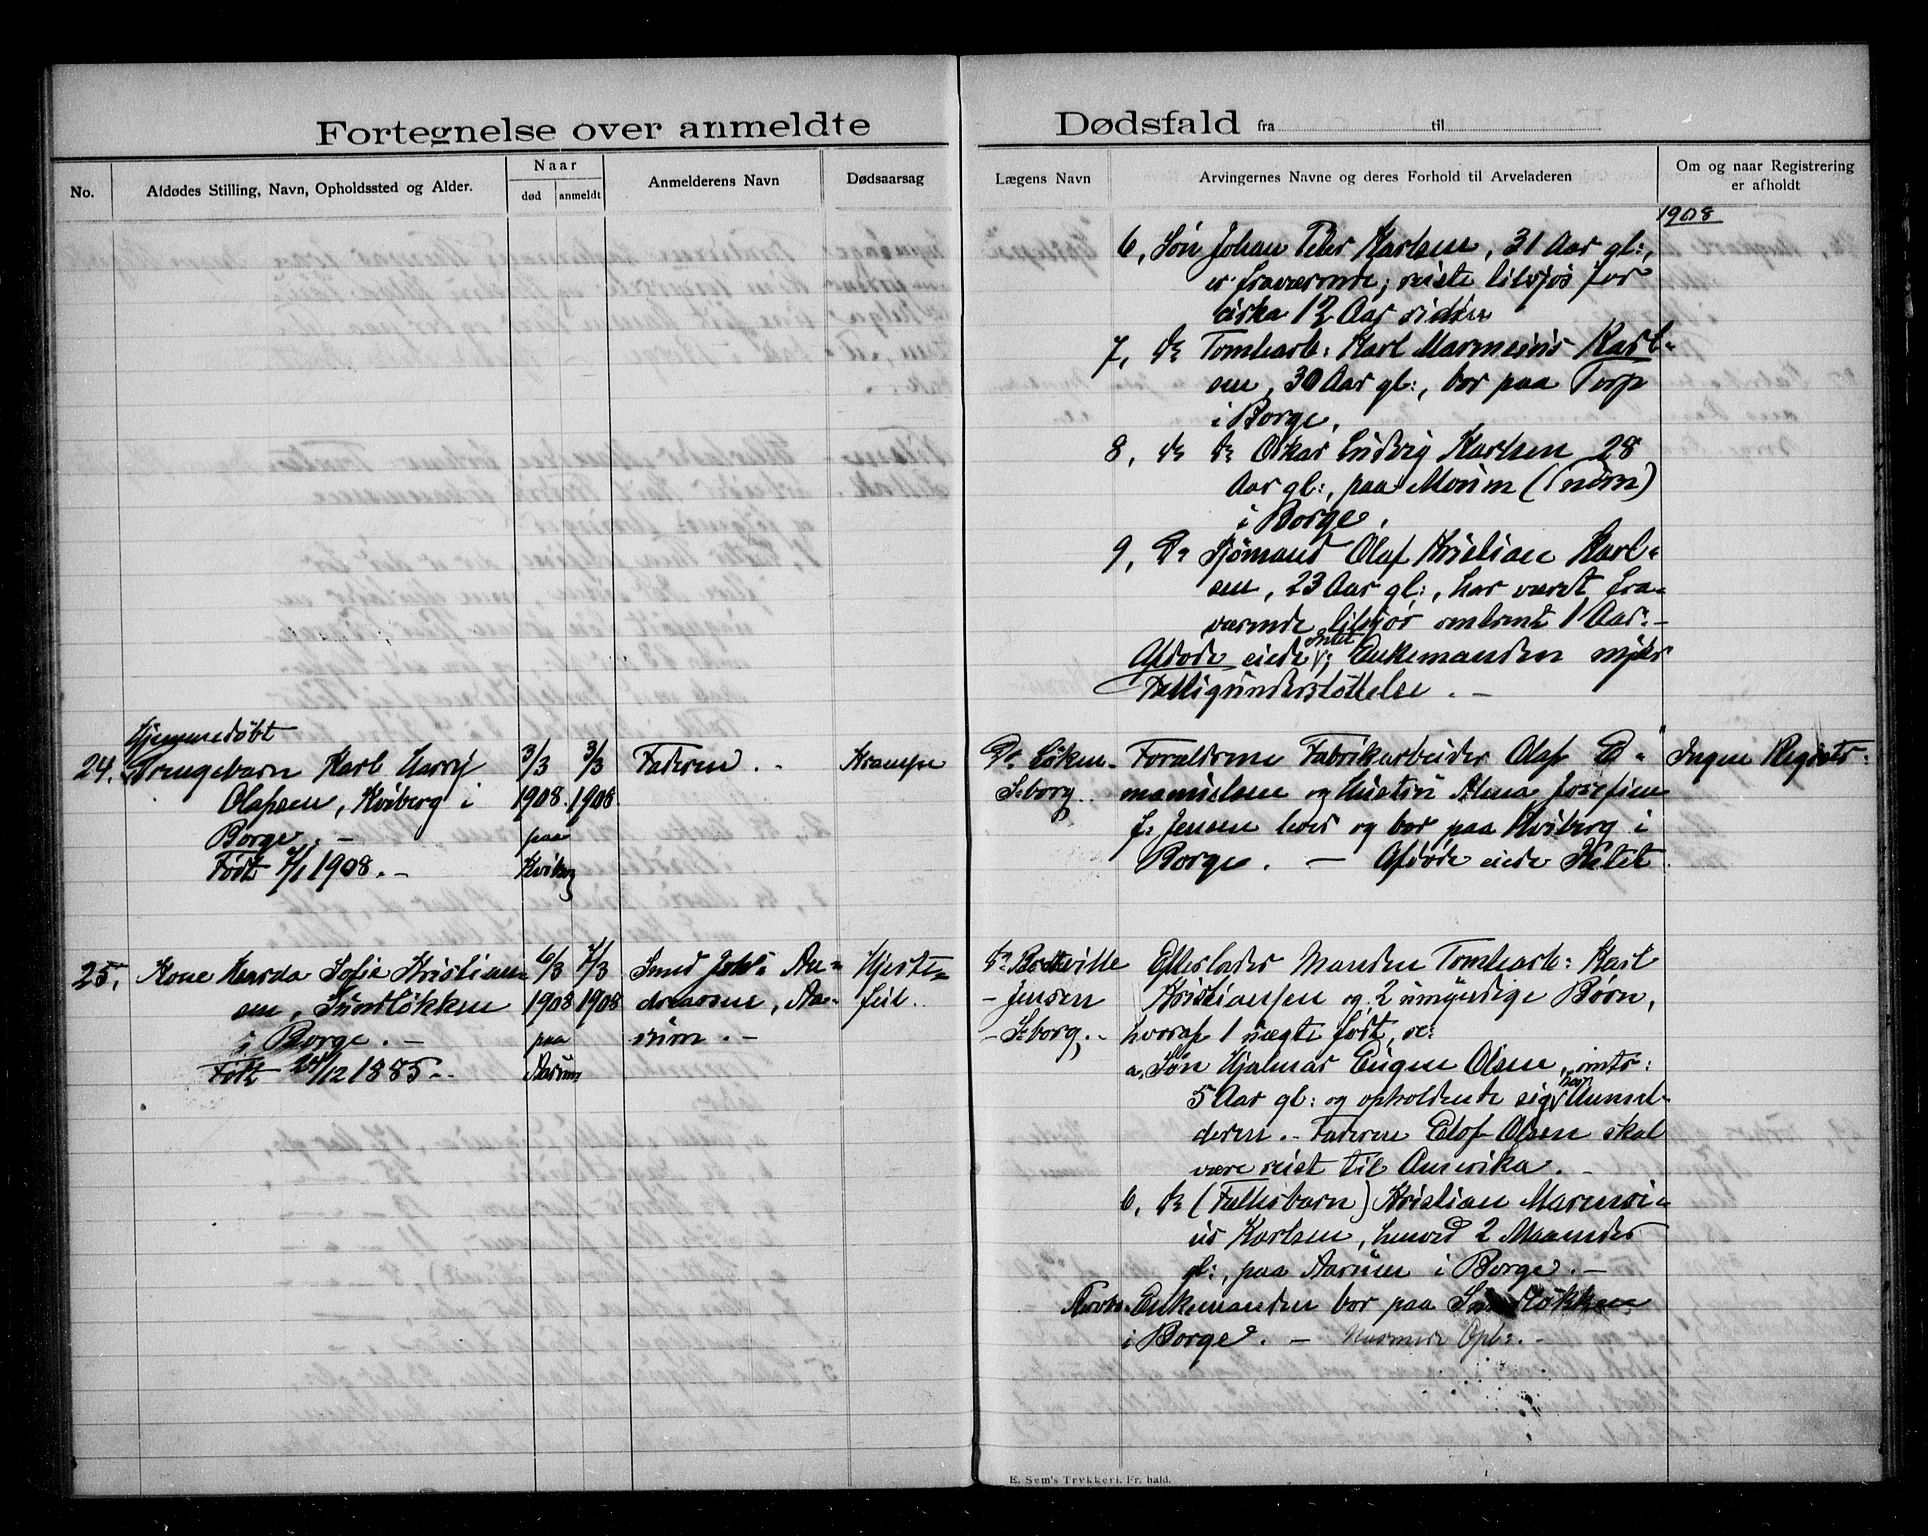 Fortegnelse over anmeldte Dødsfald fra til
No.
Afdødes Stilling, Navn, Opholdssted og Alder.
Naar
død anmeldt
Anmelderens Navn
Dødsaarsag
Lægens Navn
Arvingernes Navne og deres Forhold til Arveladeren
Om og naar Registrering
er afholdt
1908
6, Søn Johan Peter Karlsen, 31 Aar gl:,
er fraværende; reiste tilsjøs for
cirka 12 Aar siden
7, do Tomtearb: Karl Marmeius Karl-
sen, 30 Aar gl:, bor paa Torp
i Borge,
8, do do Oskar Ludvig Karlsen 28
Aar gl:, paa Moum
i Borge,
9, do Sjømand Olaf Kristian Karl-
sen, 23 Aar gl:, har været fra-
værende tilsjøs omtrent 1 Aar.-
Afdøde eiede Intet; Enkemanden nyder
Fattigunderstøttelse. -
Hjemmedøbt
24. Drengebarn Karl Harry
Olafsen, Kviberg i
Borge. -
Født 7/1 1908. -
3/3
1908
paa
Kviberg
3/3
1908
Faderen. -
Krampe
Dr. Løken
F:borg.
Forældrene Fabrikarbeider Olaf E-
manuelsen og Hustru Alma Josefine
f: Jensen lever og bor paa Kviberg i
Borge. - Afdøde eiede Intet
Ingen Registr:
25. Kone Sofie Kristian-
sen, Sundløkken
i Borge. -
Født /12 1885. -
6/3
1908
paa
Aarum
7/3
1908
Smed Joh: An-
dreassen, Aa-
rum. -
Hjerte-
feil.
Dr. Bretteville
- Jensen
- F:borg. -
Efterlader Manden Tomtearb: Karl
Kristiansen og 2 umyndige Børn,
hvoraf 1 uægte født, se:
a, Søn Hjalmar Eugen Olsen, omtr:
5 Aar gl: og opholdende sig hos Anmel-
deren. - Faderen Elof Olsen skal
være reist til Amerika. -
b, do (Fællesbarn) Kristian Marmei-
us Karlsen, henved 2 Maaneder
gl:, paa Aarum i Borge. -
Enkemanden bor paa Sundløkken
i Borge. - Nærmere Opl:. -
E. Sem's Trykkeri. Fr. hald.